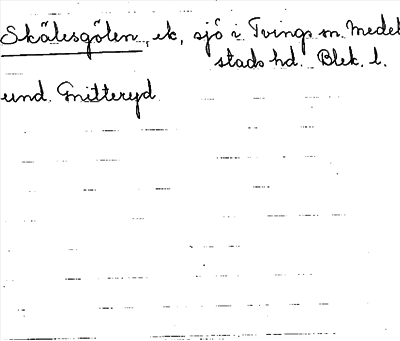 Skälesgölen, ek, sjö i Tvings sn. Medel
stads hd. Blek. l.
und. Gnitteryd